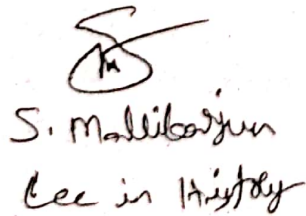 S. Mallikarjun
Lec in History